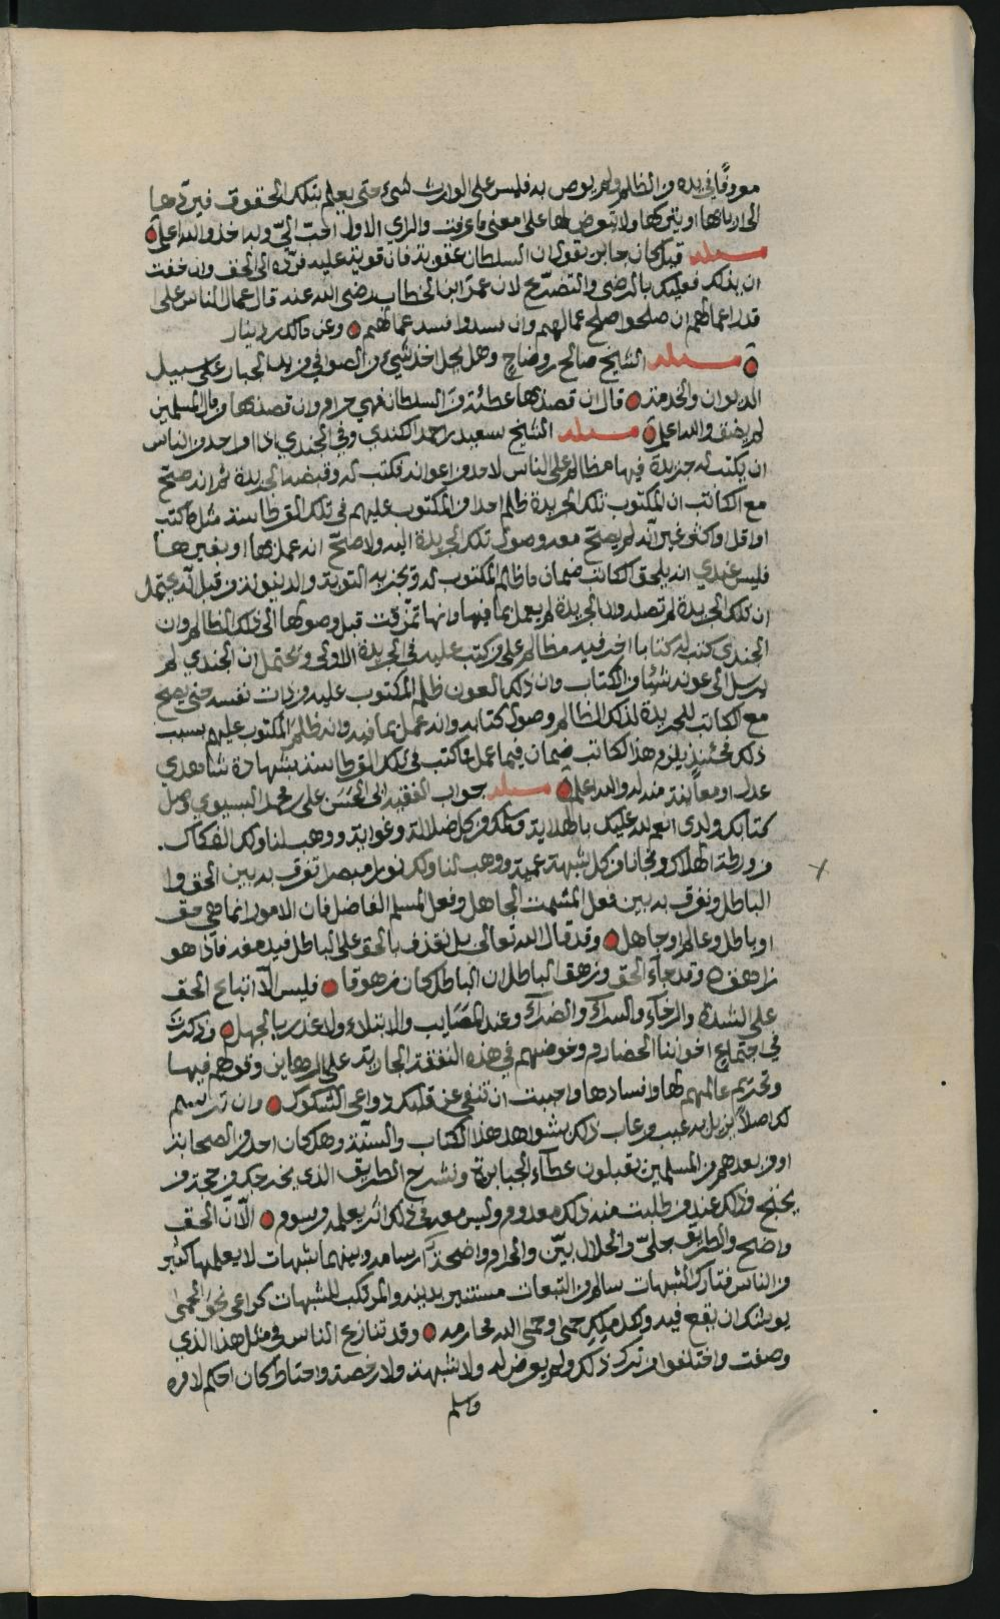 معروفًا في يده من الظلم ولم يوص به فليس على الوارث شيء حتى يعلم بتلك الحقوق فيردها
الى اربابها او يتركها ولا تعوض لها على معنى ما عرفت والراي الاول احب اليّ وبه اخذ والله اعلم
مسئلة قيل كان جابر يقول ان السلطان عقوبة فان قويت عليه فرده الى الحق وان خفت
ان بذلك فعليك بالرضى والتضرّع لان عمر ابن الخطاب رضي الله عنه قال عمال الناس على
قدر اعمالهم ان صلحوا صلح عمالهم وان فسدوا فسد عمالهم وعن مالك بن دينار
مسئلة الشيخ صالح بن وضاح وهل يحل اخذ شيء من الصوافي من يد الجبار على سبيل
الديوان والخدمة قال ان قصد بها عطيّة من السلطان فهي حرام وان قصد بها من مال المسلمين
لم يضق والله اعلم مسئلة الشيخ سعيد بن احمد الكندي وفي الجندي اذا امر احد من الناس
ان يكتب له جريدة فيها مظالم على الناس لاحد من اعوانه فكتب له وقبضه الجريدة ثم انه صحّ
مع الكاتب ان المكتوب تلك الجريدة ظلم احدا من المكتوب عليهم في تلك القرطاسة مثل ما كتب
او اقل او اكثر غير انه لم يصحّ معه وصول تلك الجريدة اليه ولا صحّ انه عمل بها او بغيرها
فليس عندي انه يلحق الكاتب ضمان ما ظلم المكتوب له وتجزيه التوبة والدينونة من قبل انه يحتمل
ان تلك الجريدة لم تصله وان الجريدة لم يعمل بما فيها وانها تمزقت قبل وصولها الى ذلك الظالم وان
الجندي كتب له كتابا اخر فيه مظالم على من كتب عليه في الجريدة الاولى ويحتمل ان الجندي لم
يرسل الى عونه شيئا من الكتاب وان ذلك العون ظلم المكتوب عليه من ذات نفسه حتى يصح
مع الكاتب للجريدة لذلك الظالم وصول كتابه وانه عمل بما فيه وانه ظلم المكتوب عليهم بسبب
ذلك فحينئذ يلزم هذا الكاتب ضمان فيما عمل بما كتب في تلك القرطاسة بشهادة شاهدي
عدل او معاينة منه له والله اعلم مسئلة جواب الفقيه ابي الحسن علي بن محمد البسيوي وصل
كتابك ولدي انعم الله عليك بالهداية وسلمك من كل ضلالة وغواية ووهب لنا ولك الفكاك
من ورطة الهلاك ونجانا من كل شبهة عمية ووهب لنا ولك نورا مبصرا تفرق به بين الحق وا
الباطل ونفرق به بين فعل المتهمت الجاهل وفعل المسلم الفاضل فان الامور انما هي حق
او باطل وعالم او جاهل وقد قال الله تعالى بل نقذف بالحق على الباطل فيدمغه فاذا هو
زاهق وقد جاء الحق وزهق الباطل ان الباطل كان زهوقا فليس الّا اتباع الحق
على الشدة والرخاء والسراء والضراء وعند المصايب والابتلاء ولا عذر بالجهل وذكرت
في اجتماع اخواننا الحضارم وخوضهم في هذه النفقة الجارية على الرهاين وقولهم فيها
وتحريم عالمهم لها وافسادها واحببت ان تنفي عن قلبك دواعي الشكوك وان نرسم
لك اصلًا يزيل به عيب من عاب ذلك بشواهد هذا الكتاب والسنّة وهل كان احد من الصحابة
او من بعدهم من المسلمين يقبلون عطاء الجبابرة ونشرح الطريق الذي يخرجك من حجة من
يحتج وذلك عند من طلبت منه ذلك معدوم وليس معه في ذلك اثر يعلمه مرسوم الّا ان الحق
واضح والطريق جليّ والحلال بيّن والحرام واضحة رسامه وبينهما شبهات لا يعلمها كثير
من الناس فتارك الشبهات سالم من التبعات مستنير بدينه والمرتكب للشبهات كراعي نحو الحمى
يوشك ان يقع فيه ولكل ملك حمى وحمى الله محارمه وقد تنازع الناس في مثل هذا الذي
وصفت واختلفوا من ترك ذلك ولم يعوض له ولا شبهة ولا رخصة واحتاط كان احكم لامره
وسلم